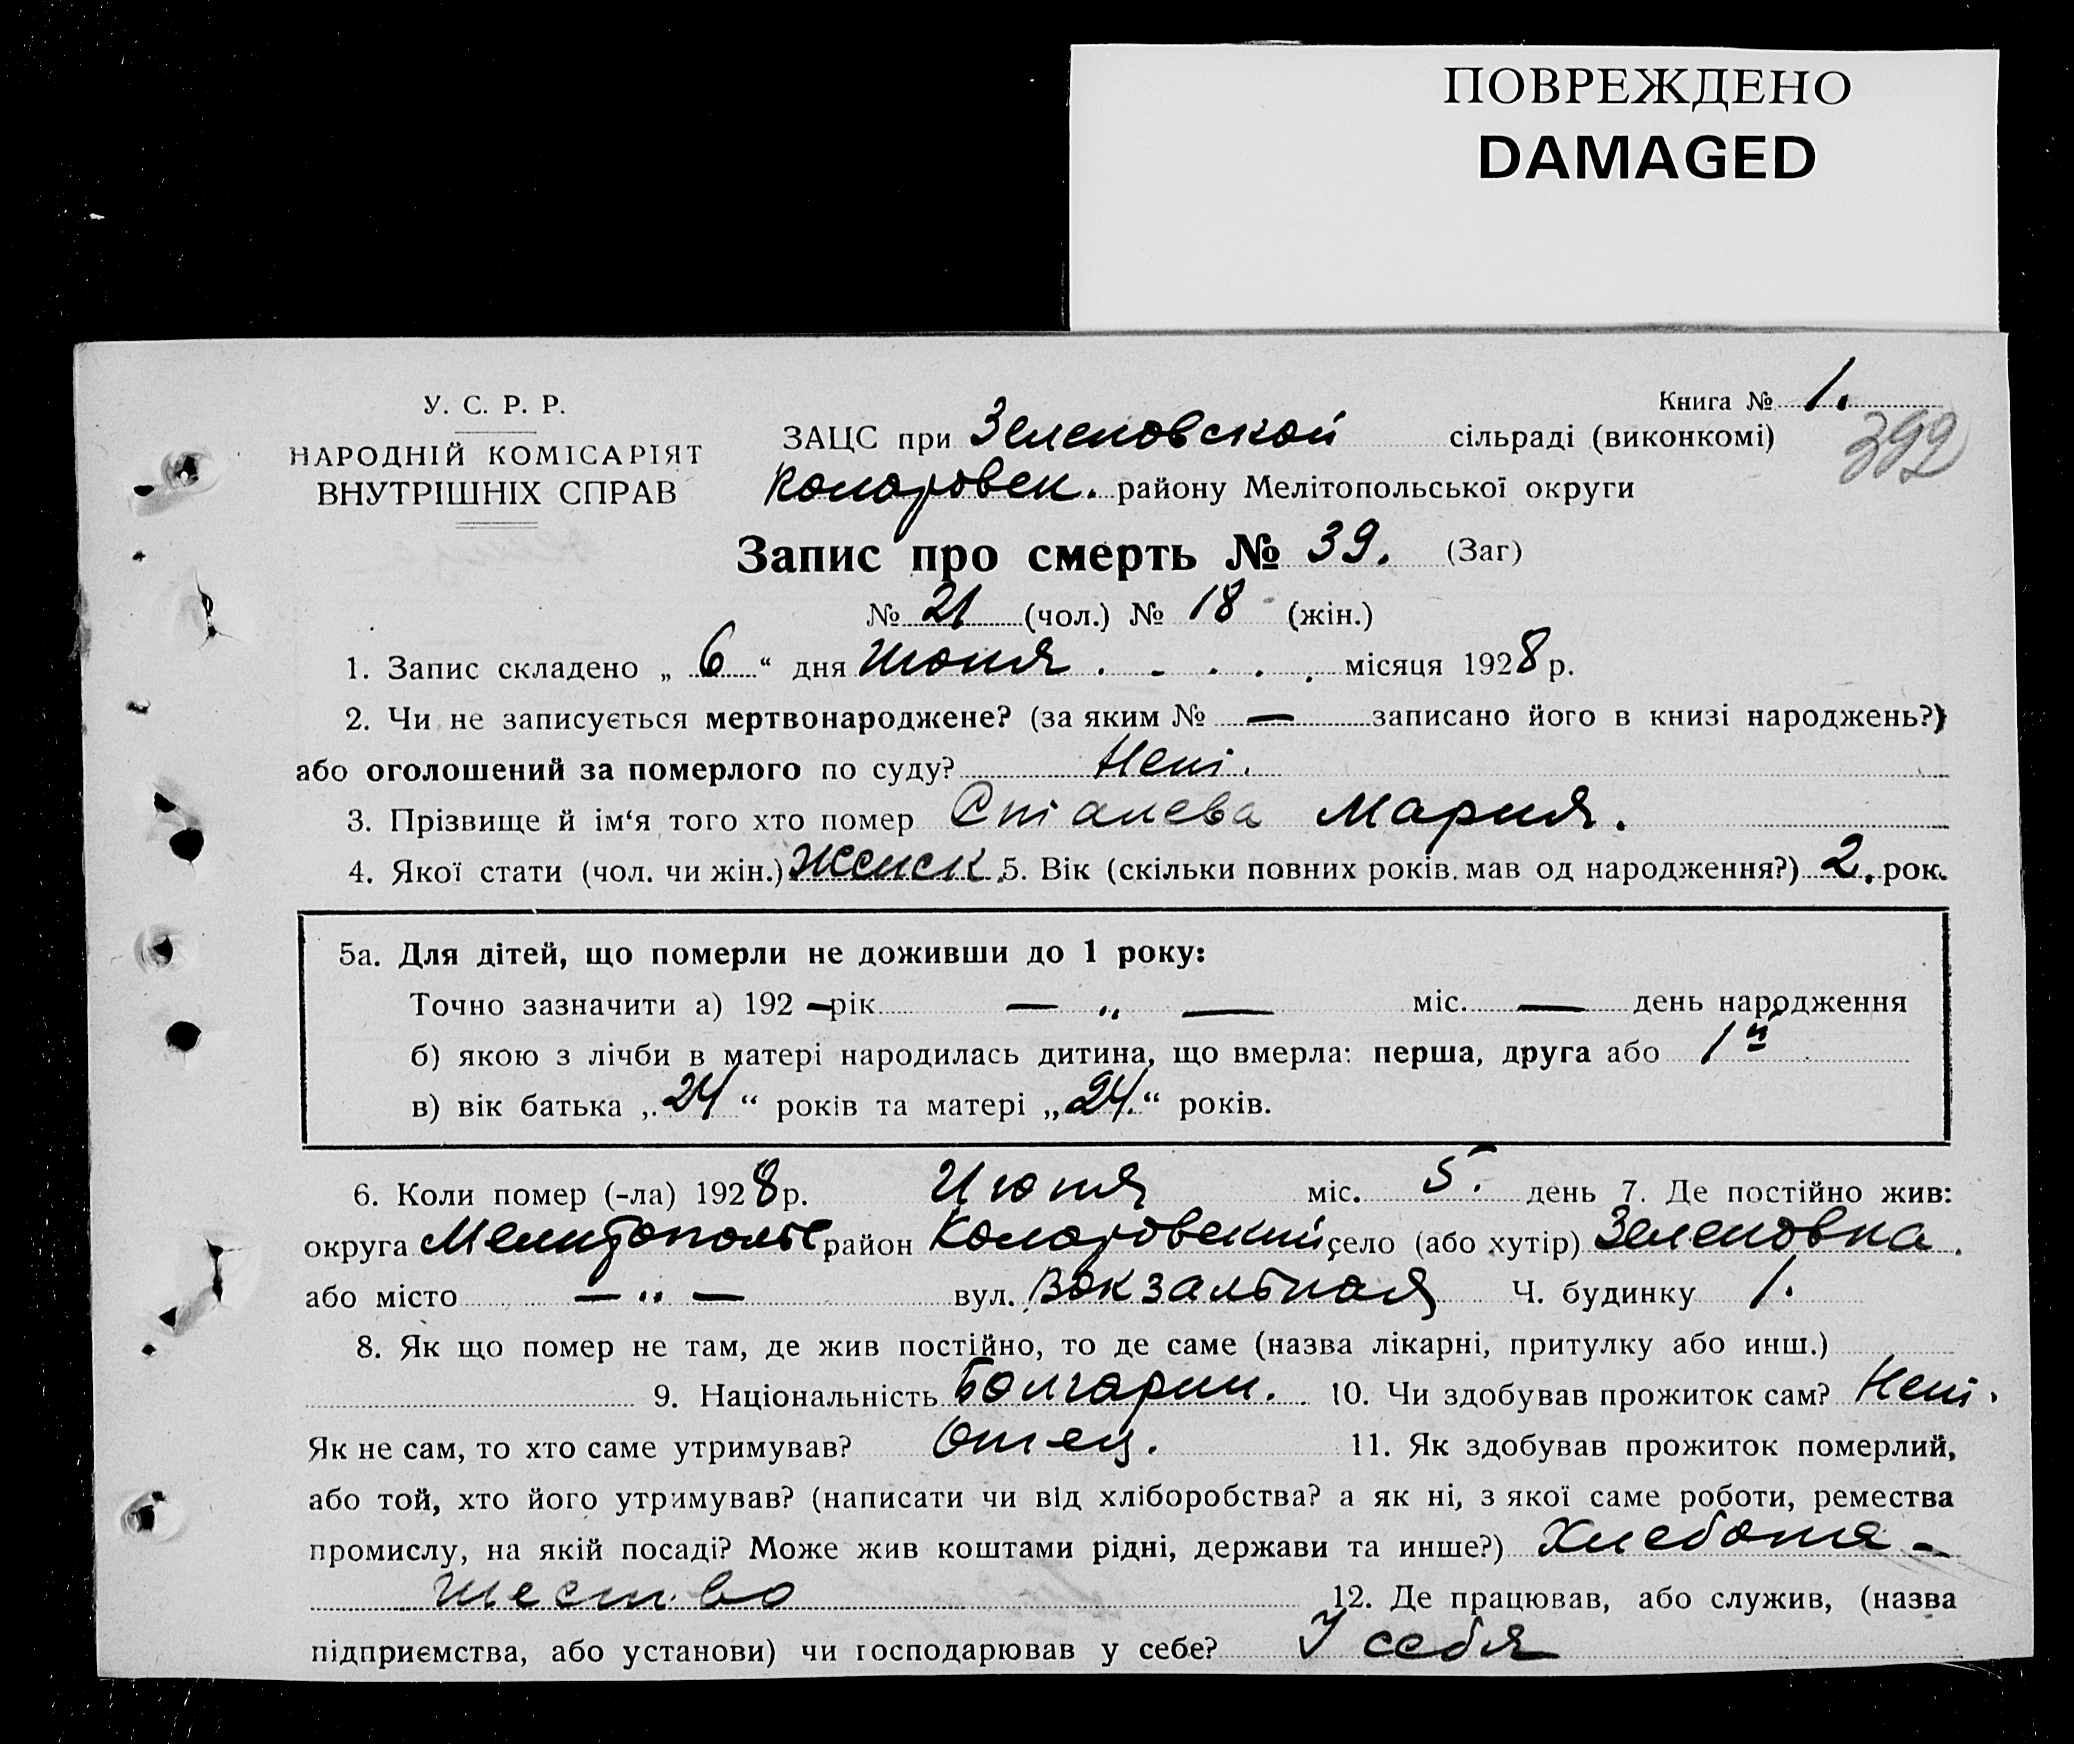 ПОВРЕЖДЕНО
DAMAGED
У. С. Р. Р.
НАРОДНІЙ КОМІСАРІЯТ
ВНУТРІШНІХ СПРАВ
Книга № 1.
392
ЗАЦС при Зеленовской сільраді (виконкомі)
Коларовск. району Мелітопольської округи
Запис про смерть № 39. (Заг)
№ 21 (чол.) № 18 (жін.)
1. Запис складено „ 6 “ дня Июня місяця 1928 р.
2. Чи не записується мертвонароджене? (за яким № — записано його в книзі народжень?)
або оголошений за померлого по суду? Нет.
3. Прізвище й ім‘я того хто помер Сталева Мария.
4. Якої стати (чол. чи жін.) Женск. 5. Вік (скільки повних років мав од народження?) 2. рок.
5а. Для дітей, що померли не доживши до 1 року:
Точно зазначити а) 192 — рік — „ — міс. — день народження
б) якою з лічби в матері народилась дитина, що вмерла: перша, друга або 1й
в) вік батька „ 24 “ років та матері „ 24. “ років.
6. Коли помер (-ла) 1928 р. Июня міс. 5. день 7. Де постійно жив:
округа Мелитопольс район Коларовский село (або хутір) Зеленовка.
або місто — „ — вул. Вокзальная Ч. будинку 1.
8. Як що помер не там, де жив постійно, то де саме (назва лікарні, притулку або инш.)
9. Національність Болгарин. 10. Чи здобував прожиток сам? Нет.
Як не сам, то хто саме утримував? Отец. 11. Як здобував прожиток померлий,
або той, хто його утримував? (написати чи від хліборобства? а як ні, з якої саме роботи, ремества
промислу, на якій посаді? Може жив коштами рідні, держави та инше?) Хлебопа-
шество 12. Де працював, або служив, (назва
підприємства, або установи) чи господарював у себе? У себя